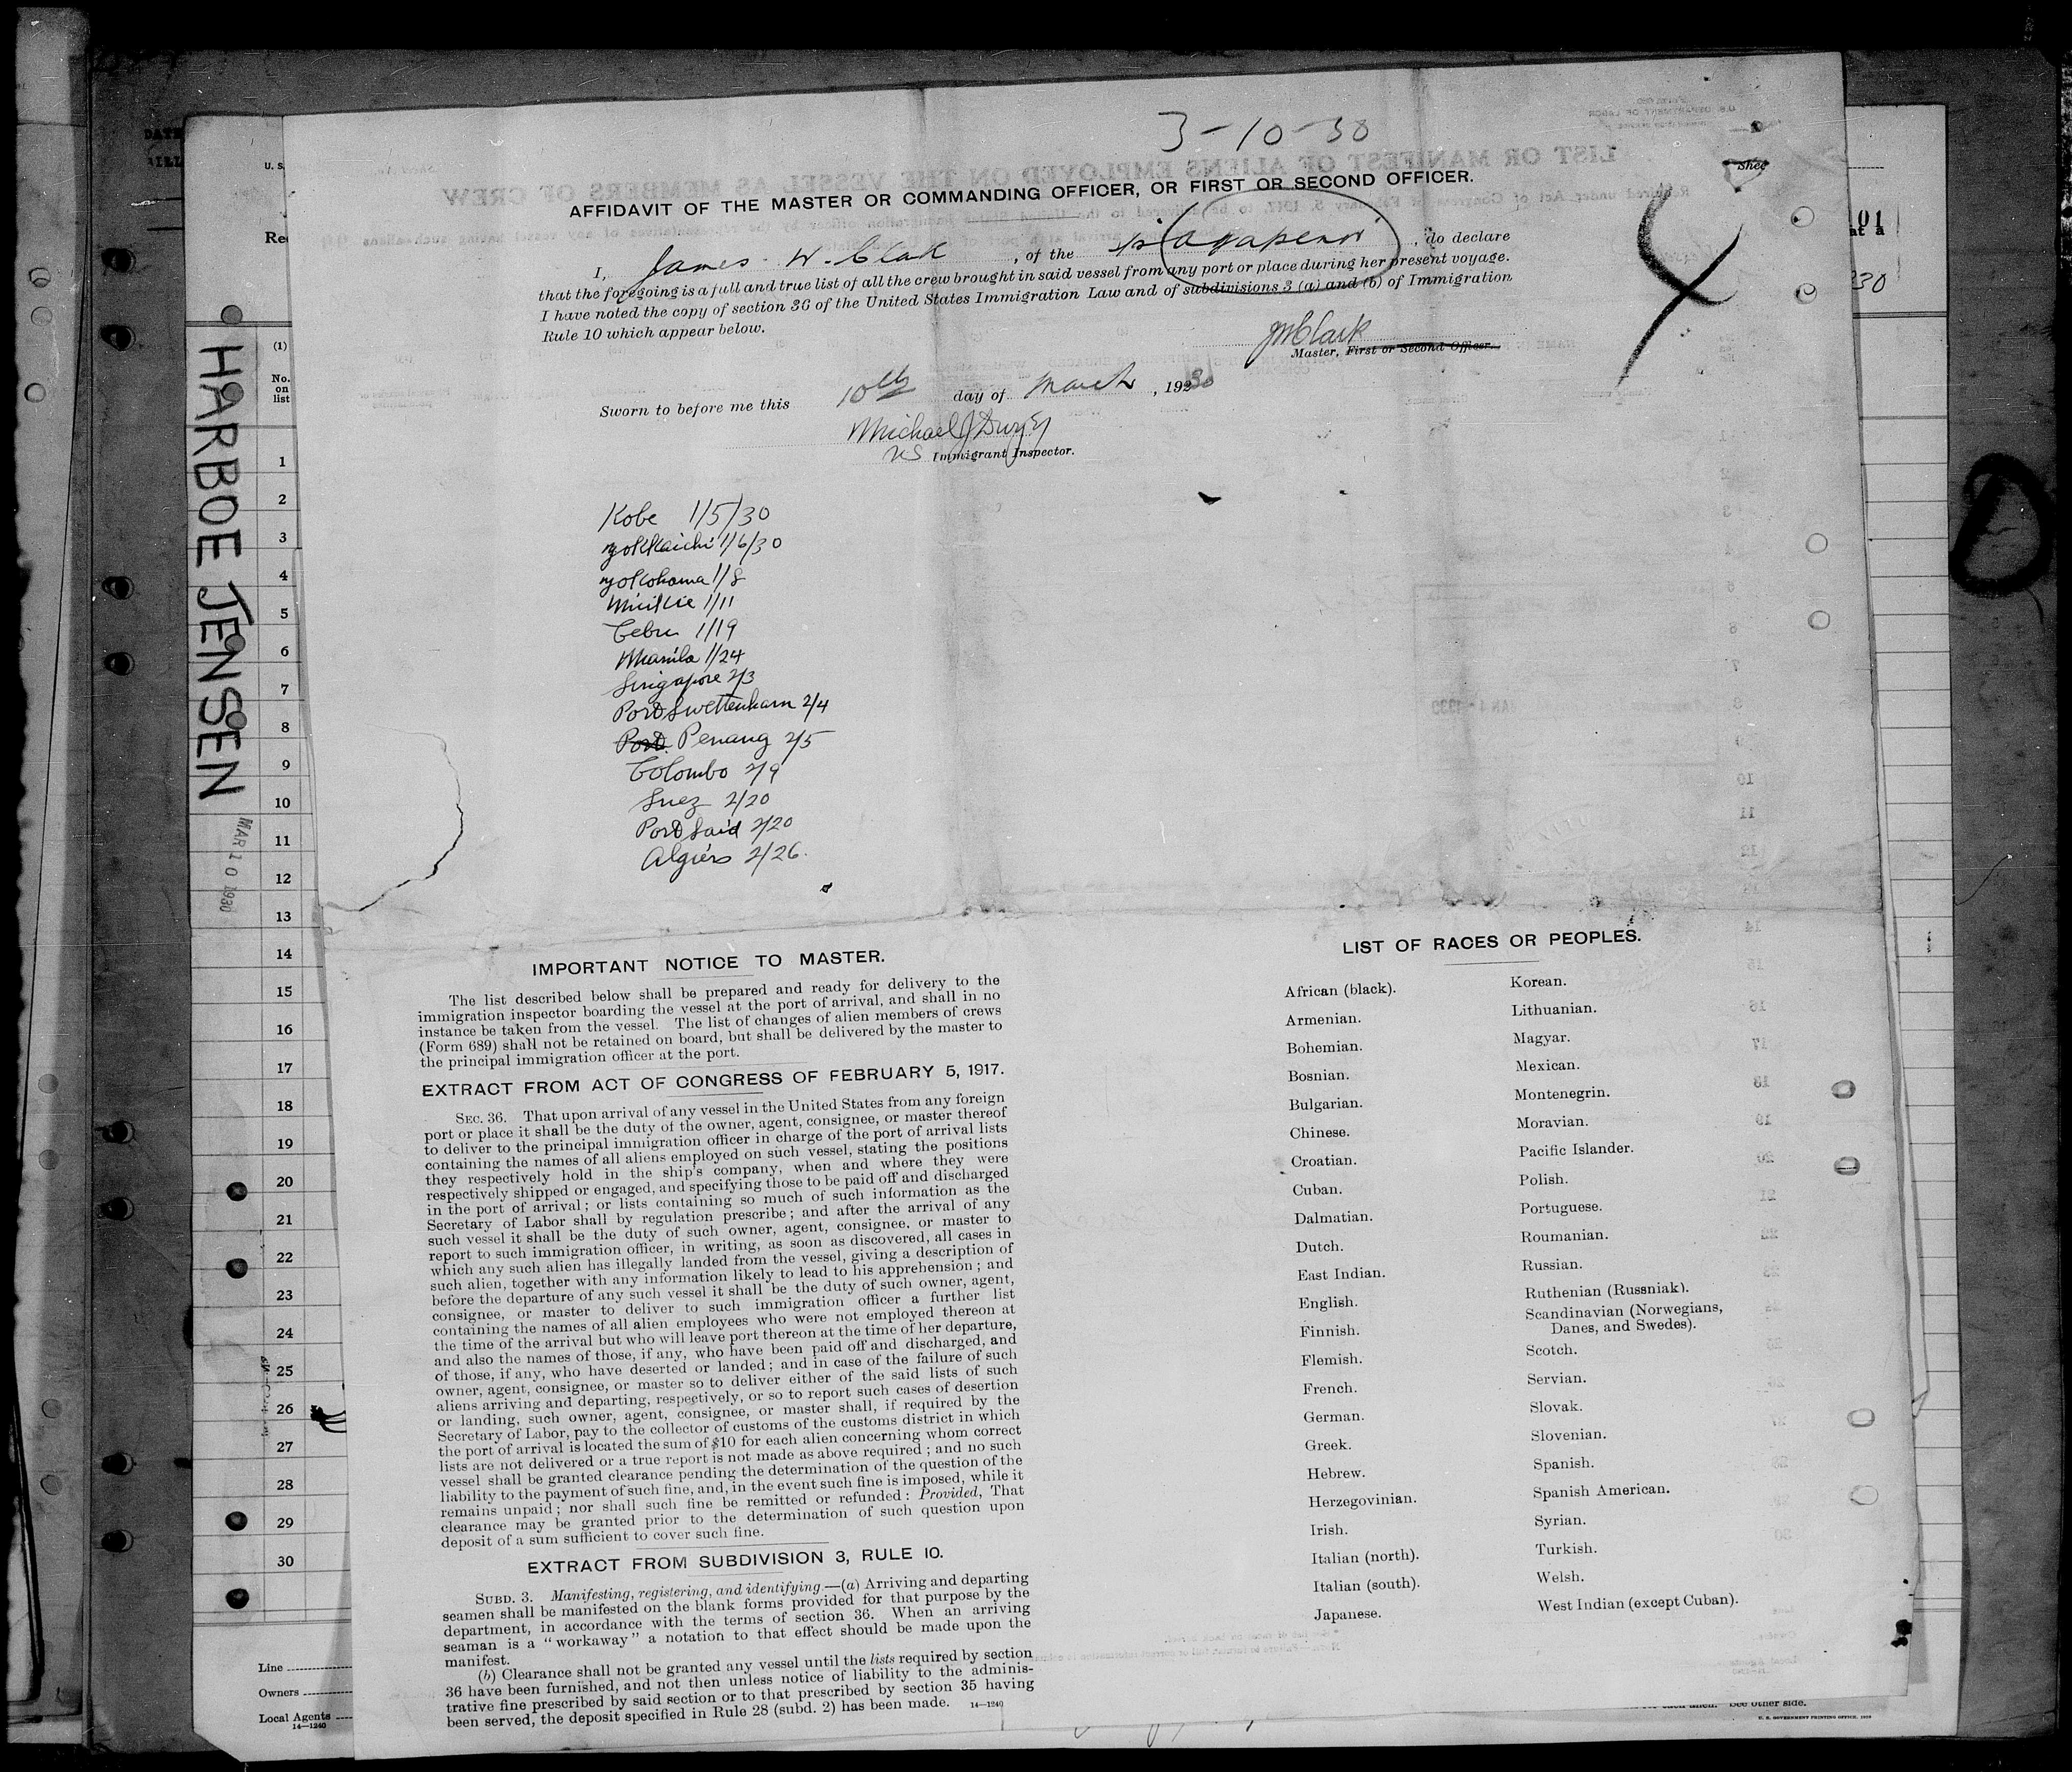 3-10-30
AFFIDAVIT OF THE MASTER OR COMMANDING OFFICER, OR FIRST OR SECOND OFFICER.
I, James W. Clark, of the Agapenor, do declare
that the foregoing is a full and true list of all the crew brought in said vessel from any port or place during her present voyage.
I have noted the copy of section 36 of the United States Immigration Law and of subdivisions 3 (a) and (b) of Immigration
Rule 10 which appear below.
JWClark
Master, First or Second Officer.
Sworn to before me this 10th day of March, 1930
Michael J Dwyer
US Immigrant Inspector.
Kobe 1/5/30
Yokkaichi 1/6/30
Yokohama 1/8
Miike 1/11
Cebu 1/19
Manila 1/24
Singapore 2/3
Port Swettenham 2/4
Port Penang 2/5
Colombo 2/9
Suez 2/20
Port Said 2/20
Algiers 2/26.
IMPORTANT NOTICE TO MASTER.
The list described below shall be prepared and ready for delivery to the
immigration inspector boarding the vessel at the port of arrival, and shall in no
instance be taken from the vessel. The list of changes of alien members of crews
(Form 689) shall not be retained on board, but shall be delivered by the master to
the principal immigration officer at the port.
EXTRACT FROM ACT OF CONGRESS OF FEBRUARY 5, 1917.
SEC. 36. That upon arrival of any vessel in the United States from any foreign
port or place it shall be the duty of the owner, agent, consignee, or master thereof
to deliver to the principal immigration officer in charge of the port of arrival lists
containing the names of all aliens employed on such vessel, stating the positions
they respectively hold in the ship's company, when and where they were
respectively shipped or engaged, and specifying those to be paid off and discharged
in the port of arrival; or lists containing so much of such information as the
Secretary of Labor shall by regulation prescribe; and after the arrival of any
such vessel it shall be the duty of such owner, agent, consignee, or master to
report to such immigration officer, in writing, as soon as discovered, all cases in
which any such alien has illegally landed from the vessel, giving a description of
such alien, together with any information likely to lead to his apprehension; and
before the departure of any such vessel it shall be the duty of such owner, agent,
consignee, or master to deliver to such immigration officer a further list
containing the names of all alien employees who were not employed thereon at
the time of the arrival but who will leave port thereon at the time of her departure,
and also the names of those, if any, who have been paid off and discharged, and
of those, if any, who have deserted or landed; and in case of the failure of such
owner, agent, consignee, or master so to deliver either of the said lists of such
aliens arriving and departing, respectively, or so to report such cases of desertion
or landing, such owner, agent, consignee, or master shall, if required by the
Secretary of Labor, pay to the collector of customs of the customs district in which
the port of arrival is located the sum of $10 for each alien concerning whom correct
lists are not delivered or a true report is not made as above required; and no such
vessel shall be granted clearance pending the determination of the question of the
liability to the payment of such fine, and, in the event such fine is imposed, while it
remains unpaid; nor shall such fine be remitted or refunded: Provided, That
clearance may be granted prior to the determination of such question upon
deposit of a sum sufficient to cover such fine.
EXTRACT FROM SUBDIVISION 3, RULE 10.
SUBD. 3. Manifesting, registering, and identifying.—(a) Arriving and departing
seamen shall be manifested on the blank forms provided for that purpose by the
department, in accordance with the terms of section 36. When an arriving
seaman is a "workaway" a notation to that effect should be made upon the
manifest.
(b) Clearance shall not be granted any vessel until the lists required by section
36 have been furnished, and not then unless notice of liability to the adminis-
trative fine prescribed by said section or to that prescribed by section 35 having
been served, the deposit specified in Rule 28 (subd. 2) has been made. 14—1240
LIST OF RACES OR PEOPLES.
African (black).
Armenian.
Bohemian.
Bosnian.
Bulgarian.
Chinese.
Croatian.
Cuban.
Dalmatian.
Dutch.
East Indian.
English.
Finnish.
Flemish.
French.
German.
Greek.
Hebrew.
Herzegovinian.
Irish.
Italian (north).
Italian (south).
Japanese.
Korean.
Lithuanian.
Magyar.
Mexican.
Montenegrin.
Moravian.
Pacific Islander.
Polish.
Portuguese.
Roumanian.
Russian.
Ruthenian (Russniak).
Scandinavian (Norwegians,
Danes, and Swedes).
Scotch.
Servian.
Slovak.
Slovenian.
Spanish.
Spanish American.
Syrian.
Turkish.
Welsh.
West Indian (except Cuban).
HARBOE JENSEN
MAR 10 1930
U. S.
(1)
No.
on
list
1
2
3
4
5
6
7
8
9
10
11
12
13
14
15
16
17
18
19
20
21
22
23
24
25
26
27
28
29
30
Line
Owners
Local Agents
14—1240
See other side.